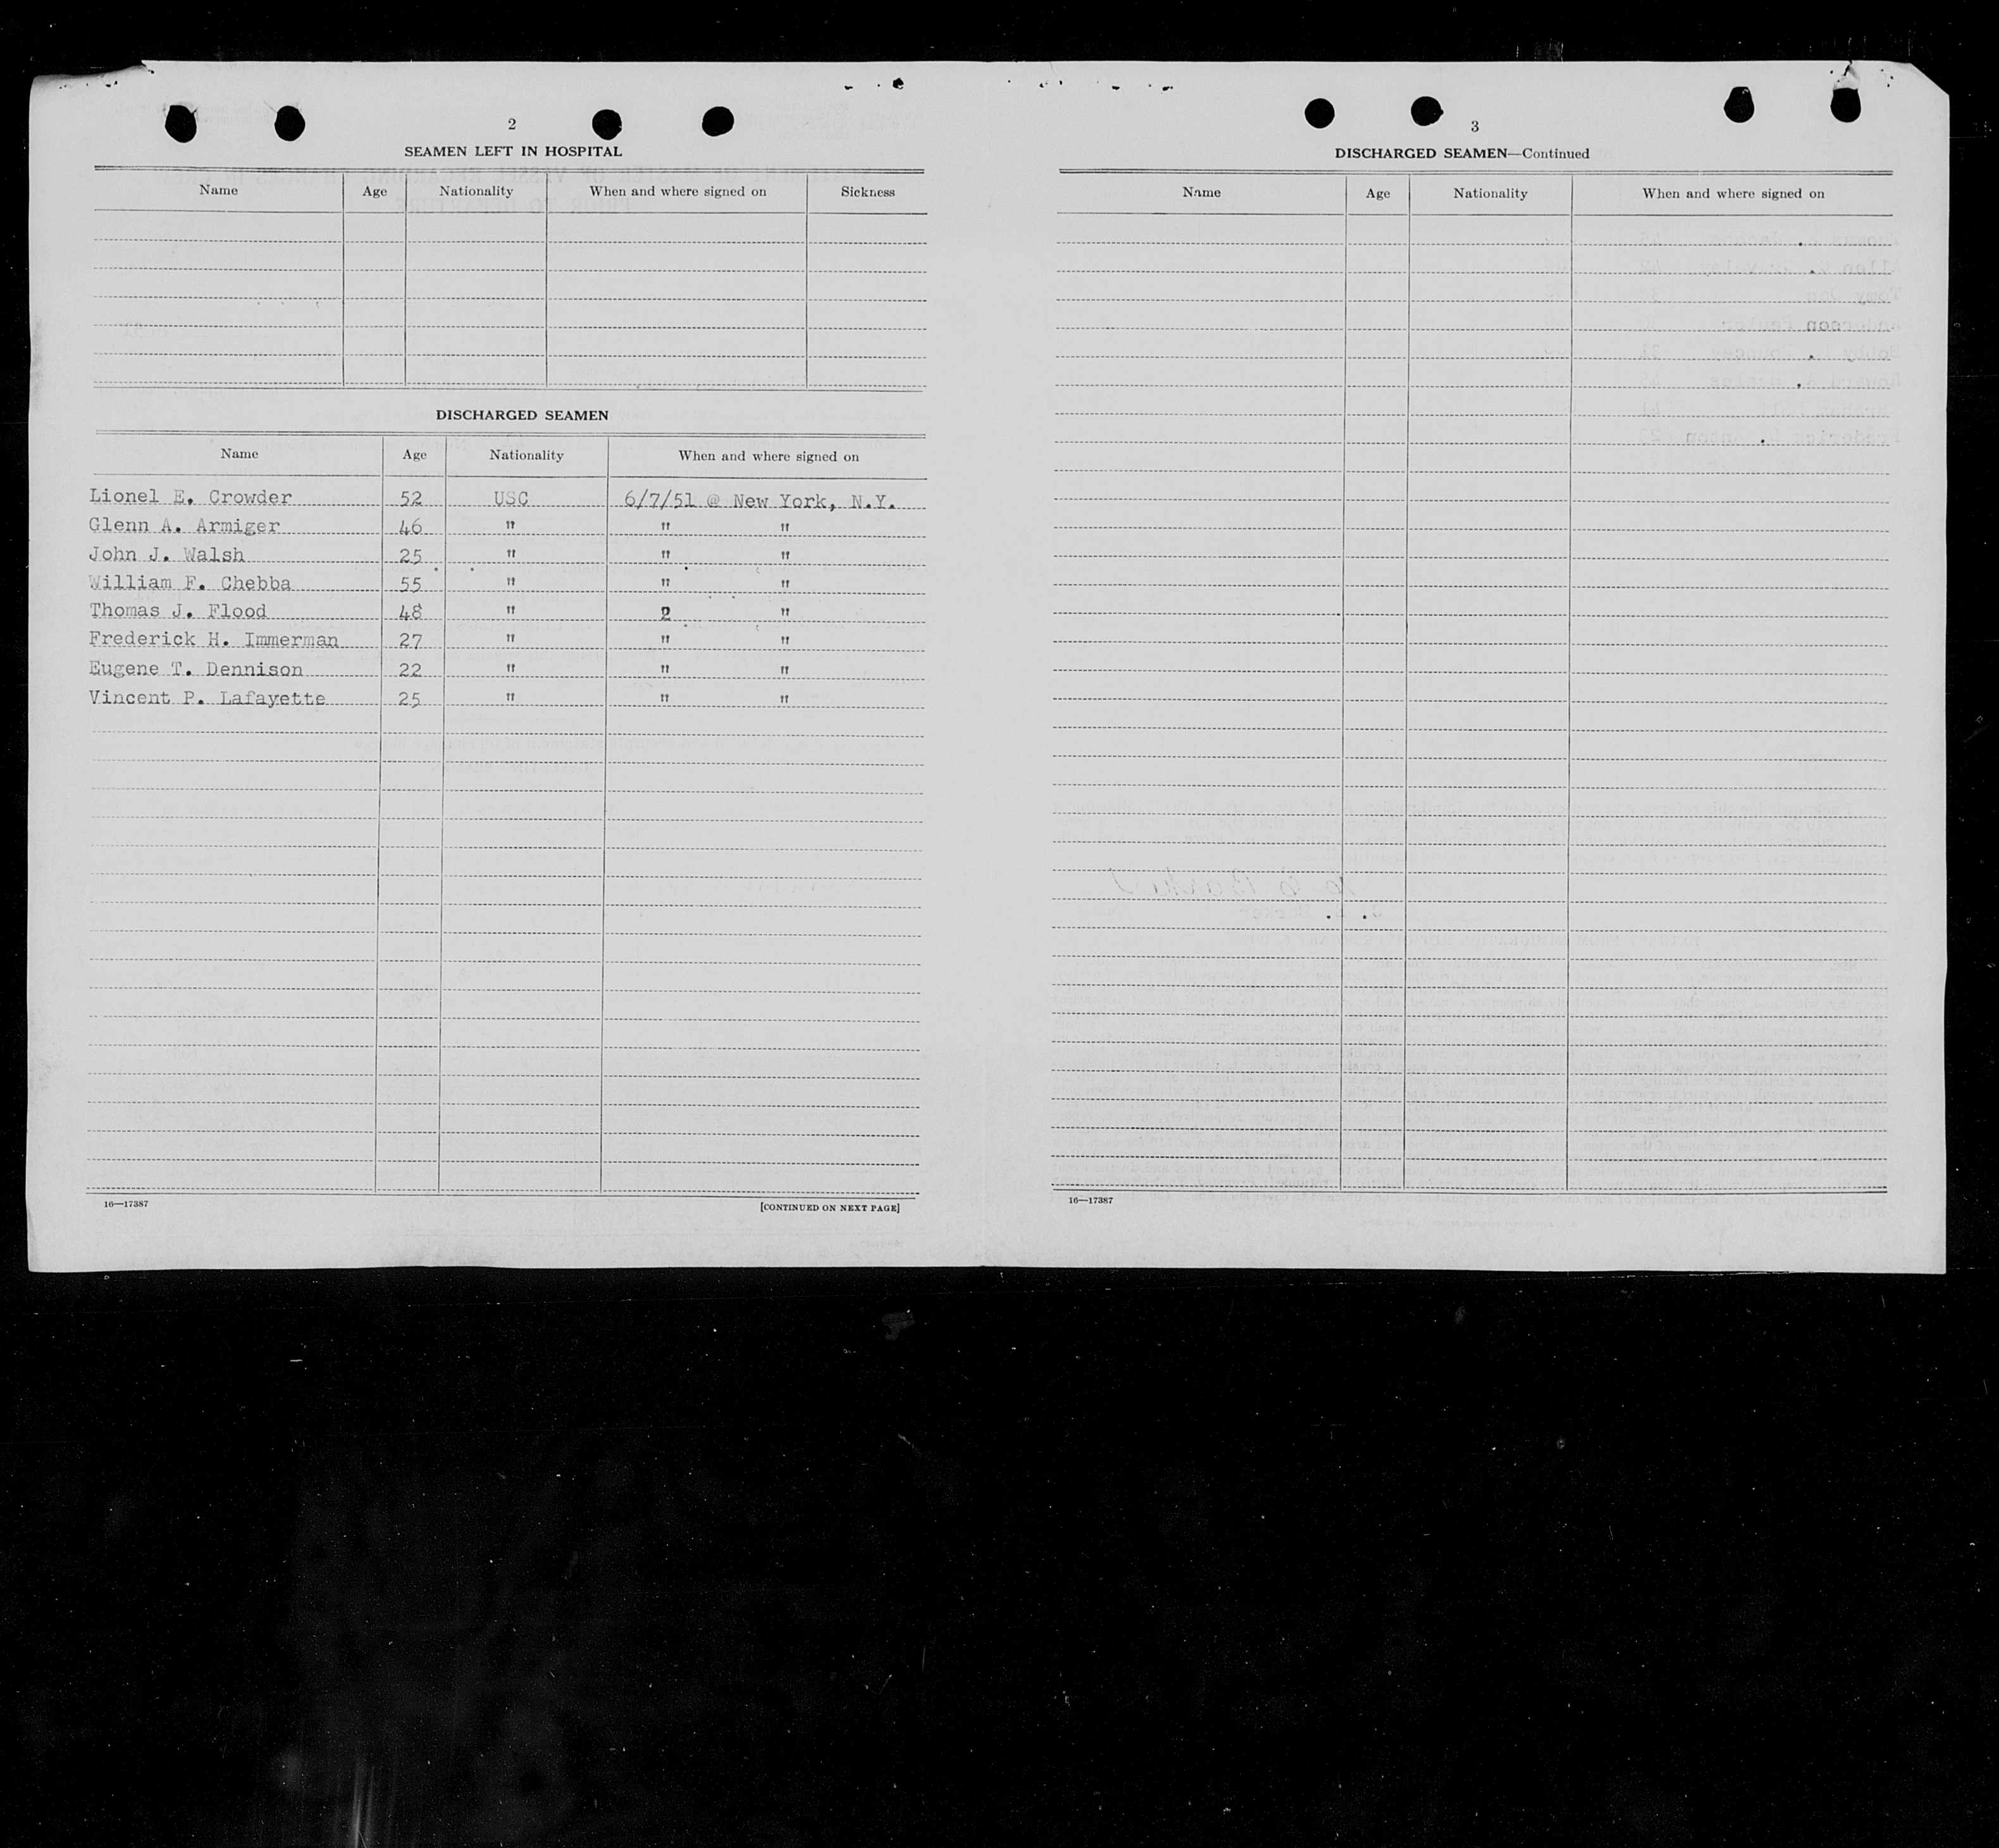 2
SEAMEN LEFT IN HOSPITAL
Name Age Nationality When and where signed on Sickness
DISCHARGED SEAMEN
Name Age Nationality When and where signed on
Lionel E. Crowder 52 USC 6/7/51 @ New York, N.Y.
Glenn A. Armiger 46 " " "
John J. Walsh 25 " " "
William F. Chebba 55 " " "
Thomas J. Flood 48 " 2 "
Frederick H. Immerman 27 " " "
Eugene T. Dennison 22 " " "
Vincent P. Lafayette 25 " " "
16—17387 [CONTINUED ON NEXT PAGE]
3
DISCHARGED SEAMEN—Continued
Name Age Nationality When and where signed on
16—17387